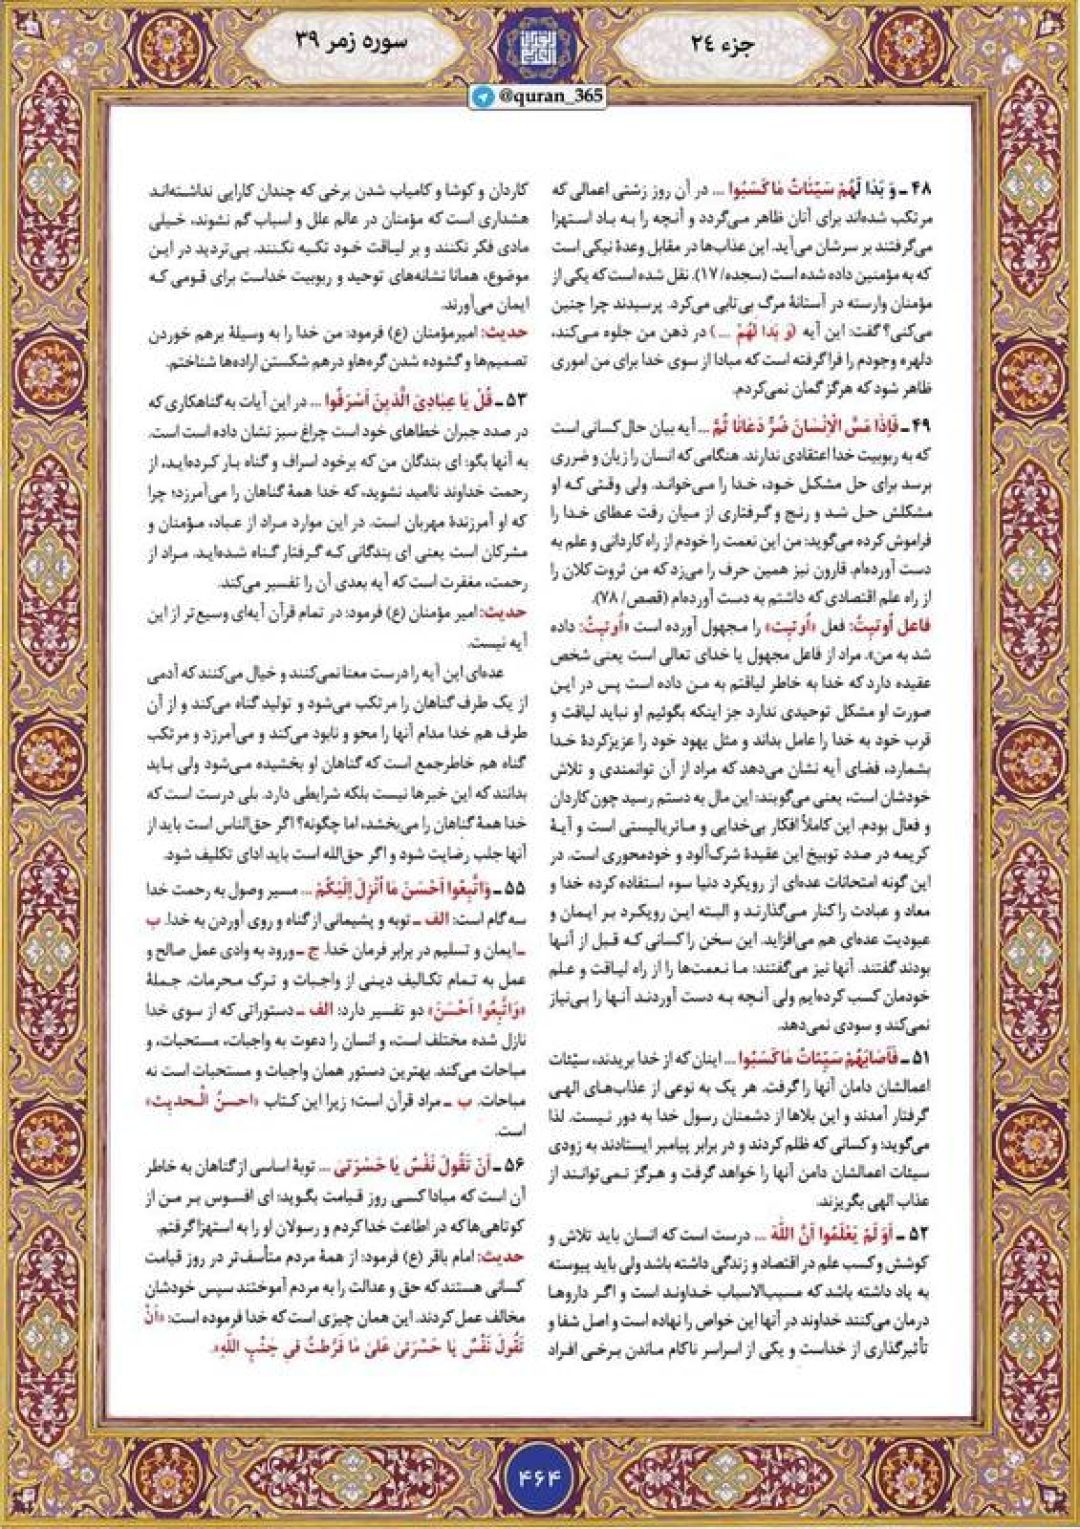 جزء ۲۴
سوره زمر ۳۹
@quran_365
۴۸ ـ وَ بَدَا لَهُمْ سَیِّئَاتُ مَا کَسَبُوا ... در آن روز زشتی اعمالی که
مرتکب شده‌اند برای آنان ظاهر می‌گردد و آنچه را به باد استهزا
می‌گرفتند بر سرشان می‌آید. این عذاب‌ها در مقابل وعدهٔ نیکی است
که به مؤمنین داده شده است (سجده/ ۱۷). نقل شده است که یکی از
مؤمنان وارسته در آستانهٔ مرگ بی‌تابی می‌کرد. پرسیدند چرا چنین
می‌کنی؟ گفت: این آیه (وَ بَدا لَهُمْ ...) در ذهن من جلوه می‌کند،
دلهره وجودم را فراگرفته است که مبادا از سوی خدا برای من اموری
ظاهر شود که هرگز گمان نمی‌کردم.
۴۹ ـ فَاِذَا مَسَّ الْاِنْسَانَ ضُرٌّ دَعَانَا ثُمَّ ... آیه بیان حال کسانی است
که به ربوبیت خدا اعتقادی ندارند. هنگامی که انسان را زیان و ضرری
برسد برای حل مشکل خود، خدا را می‌خواند. ولی وقتی که او
مشکلش حل شد و رنج و گرفتاری از میان رفت عطای خدا را
فراموش کرده می‌گوید: من این نعمت را خودم از راه کاردانی و علم به
دست آورده‌ام. قارون نیز همین حرف را می‌زد که من ثروت کلان را
از راه علم اقتصادی که داشتم به دست آورده‌ام (قصص/ ۷۸).
فاعل اُوتیتُ: فعل «اُوتیت» را مجهول آورده است «اُوتیتُ: داده
شد به من». مراد از فاعل مجهول یا خدای تعالی است یعنی شخص
عقیده دارد که خدا به خاطر لیاقتم به من داده است پس در این
صورت او مشکل توحیدی ندارد جز اینکه بگوئیم او نباید لیاقت و
قرب خود به خدا را عامل بداند و مثل یهود خود را عزیزکردهٔ خدا
بشمارد، فضای آیه نشان می‌دهد که مراد از آن توانمندی و تلاش
خودشان است، یعنی می‌گویند: این مال به دستم رسید چون کاردان
و فعال بودم. این کاملاً افکار بی‌خدایی و ماتریالیستی است و آیهٔ
کریمه در صدد توبیخ این عقیدهٔ شرک‌آلود و خودمحوری است. در
این گونه امتحانات عده‌ای از رویکرد دنیا سوء استفاده کرده خدا و
معاد و عبادت را کنار می‌گذارند و البته این رویکرد بر ایمان و
عبودیت عده‌ای هم می‌افزاید. این سخن را کسانی که قبل از آنها
بودند گفتند. آنها نیز می‌گفتند: ما نعمت‌ها را از راه لیاقت و علم
خودمان کسب کرده‌ایم ولی آنچه به دست آوردند آنها را بی‌نیاز
نمی‌کند و سودی نمی‌دهد.
۵۱ ـ فَاَصَابَهُمْ سَیِّئَاتُ مَا کَسَبُوا ... اینان که از خدا بریدند، سیّئات
اعمالشان دامان آنها را گرفت. هر یک به نوعی از عذاب‌های الهی
گرفتار آمدند و این بلاها از دشمنان رسول خدا به دور نیست. لذا
می‌گوید: و کسانی که ظلم کردند و در برابر پیامبر ایستادند به زودی
سیئات اعمالشان دامن آنها را خواهد گرفت و هرگز نمی‌توانند از
عذاب الهی بگریزند.
۵۲ ـ اَوَ لَمْ یَعْلَمُوا اَنَّ اللّٰهَ ... درست است که انسان باید تلاش و
کوشش و کسب علم در اقتصاد و زندگی داشته باشد ولی باید پیوسته
به یاد داشته باشد که مسبب‌الاسباب خداوند است و اگر داروها
درمان می‌کنند خداوند در آنها این خواص را نهاده است و اصل شفا و
تأثیرگذاری از خداست و یکی از اسراسر ناکام ماندن برخی افراد
کاردان و کوشا و کامیاب شدن برخی که چندان کارایی نداشته‌اند
هشداری است که مؤمنان در عالم علل و اسباب گم نشوند، خیلی
مادی فکر نکنند و بر لیاقت خود تکیه نکنند. بی‌تردید در این
موضوع، همانا نشانه‌های توحید و ربوبیت خداست برای قومی که
ایمان می‌آورند.
حدیث: امیرمؤمنان (ع) فرمود: من خدا را به وسیلهٔ برهم خوردن
تصمیم‌ها و گشوده شدن گره‌ها و درهم شکستن اراده‌ها شناختم.
۵۳ ـ قُلْ یَا عِبَادِیَ الَّذِینَ اَسْرَفُوا ... در این آیات به گناهکاری که
در صدد جبران خطاهای خود است چراغ سبز نشان داده است است.
به آنها بگو: ای بندگان من که برخود اسراف و گناه بار کرده‌اید، از
رحمت خداوند ناامید نشوید، که خدا همهٔ گناهان را می‌آمرزد؛ چرا
که او آمرزندهٔ مهربان است. در این موارد مراد از عباد، مؤمنان و
مشرکان است یعنی ای بندگانی که گرفتار گناه شده‌اید. مراد از
رحمت، مغفرت است که آیه بعدی آن را تفسیر می‌کند.
حدیث: امیر مؤمنان (ع) فرمود: در تمام قرآن آیه‌ای وسیع‌تر از این
آیه نیست.
عده‌ای این آیه را درست معنا نمی‌کنند و خیال می‌کنند که آدمی
از یک طرف گناهان را مرتکب می‌شود و تولید گناه می‌کند و از آن
طرف هم خدا مدام آنها را محو و نابود می‌کند و می‌آمرزد و مرتکب
گناه هم خاطرجمع است که گناهان او بخشیده می‌شود ولی باید
بدانند که این خبرها نیست بلکه شرایطی دارد. بلی درست است که
خدا همهٔ گناهان را می‌بخشد، اما چگونه؟ اگر حق‌الناس است باید از
آنها جلب رضایت شود و اگر حق‌الله است باید ادای تکلیف شود.
۵۵ ـ وَاتَّبِعُوا اَحْسَنَ مَا اُنْزِلَ اِلَیْکُمْ ... مسیر وصول به رحمت خدا
سه گام است: الف ـ توبه و پشیمانی از گناه و روی آوردن به خدا. ب
ـ ایمان و تسلیم در برابر فرمان خدا. ج ـ ورود به وادی عمل صالح و
عمل به تمام تکالیف دینی از واجبات و ترک محرمات. جملهٔ
«وَاتَّبِعُوا اَحْسَنَ» دو تفسیر دارد: الف ـ دستوراتی که از سوی خدا
نازل شده مختلف است، و انسان را دعوت به واجبات، مستحبات، و
مباحات می‌کند. بهترین دستور همان واجبات و مستحبات است نه
مباحات. ب ـ مراد قرآن است؛ زیرا این کتاب «احسنُ الْحدیث»
است.
۵۶ ـ اَنْ تَقُولَ نَفْسٌ یَا حَسْرَتَی ... توبهٔ اساسی از گناهان به خاطر
آن است که مبادا کسی روز قیامت بگوید: ای افسوس بر من از
کوتاهی‌ها که در اطاعت خدا کردم و رسولان او را به استهزا گرفتم.
حدیث: امام باقر (ع) فرمود: از همهٔ مردم متأسف‌تر در روز قیامت
کسانی هستند که حق و عدالت را به مردم آموختند سپس خودشان
مخالف عمل کردند. این همان چیزی است که خدا فرموده است: «اَنْ
تَقُولَ نَفْسٌ یَا حَسْرَتیٰ عَلیٰ مَا فَرَّطتُ فی جَنْبِ اللّٰهِ».
۴۶۴